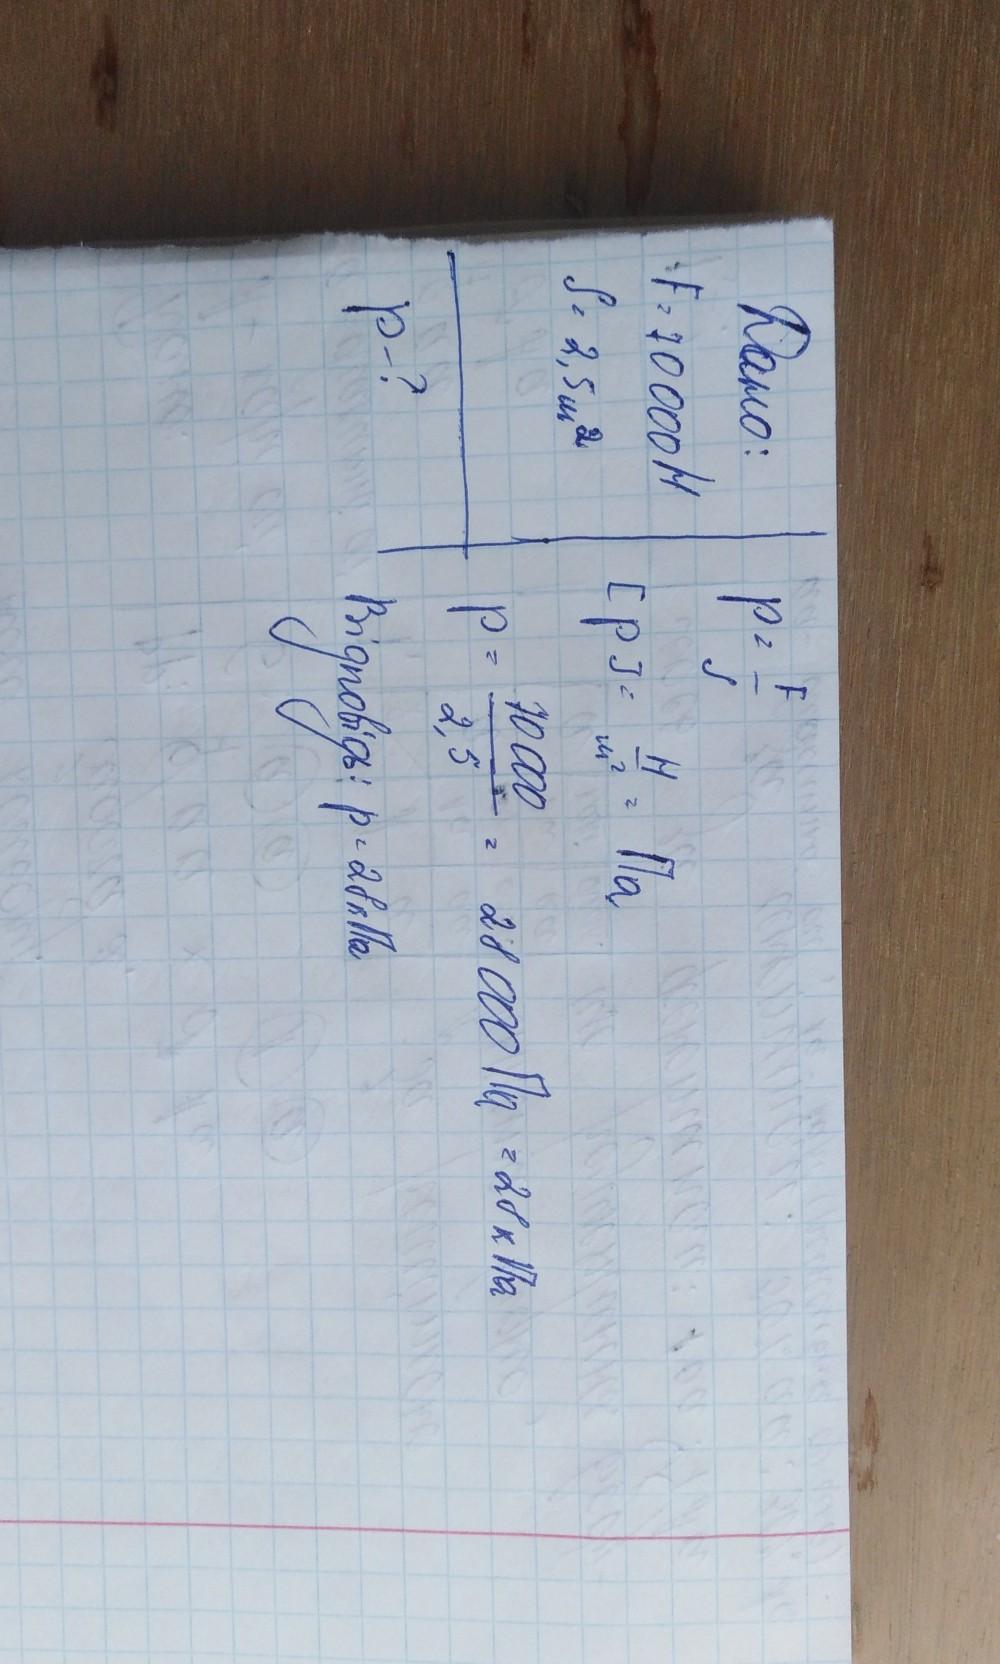 Дано:
F = 70 000 Н
S = 2,5 м²
p - ?
p = F/S
[p] = Н/м² = Па,
p = 70 000/2,5 = 28 000 Па = 28 кПа
Відповідь: p = 28 кПа